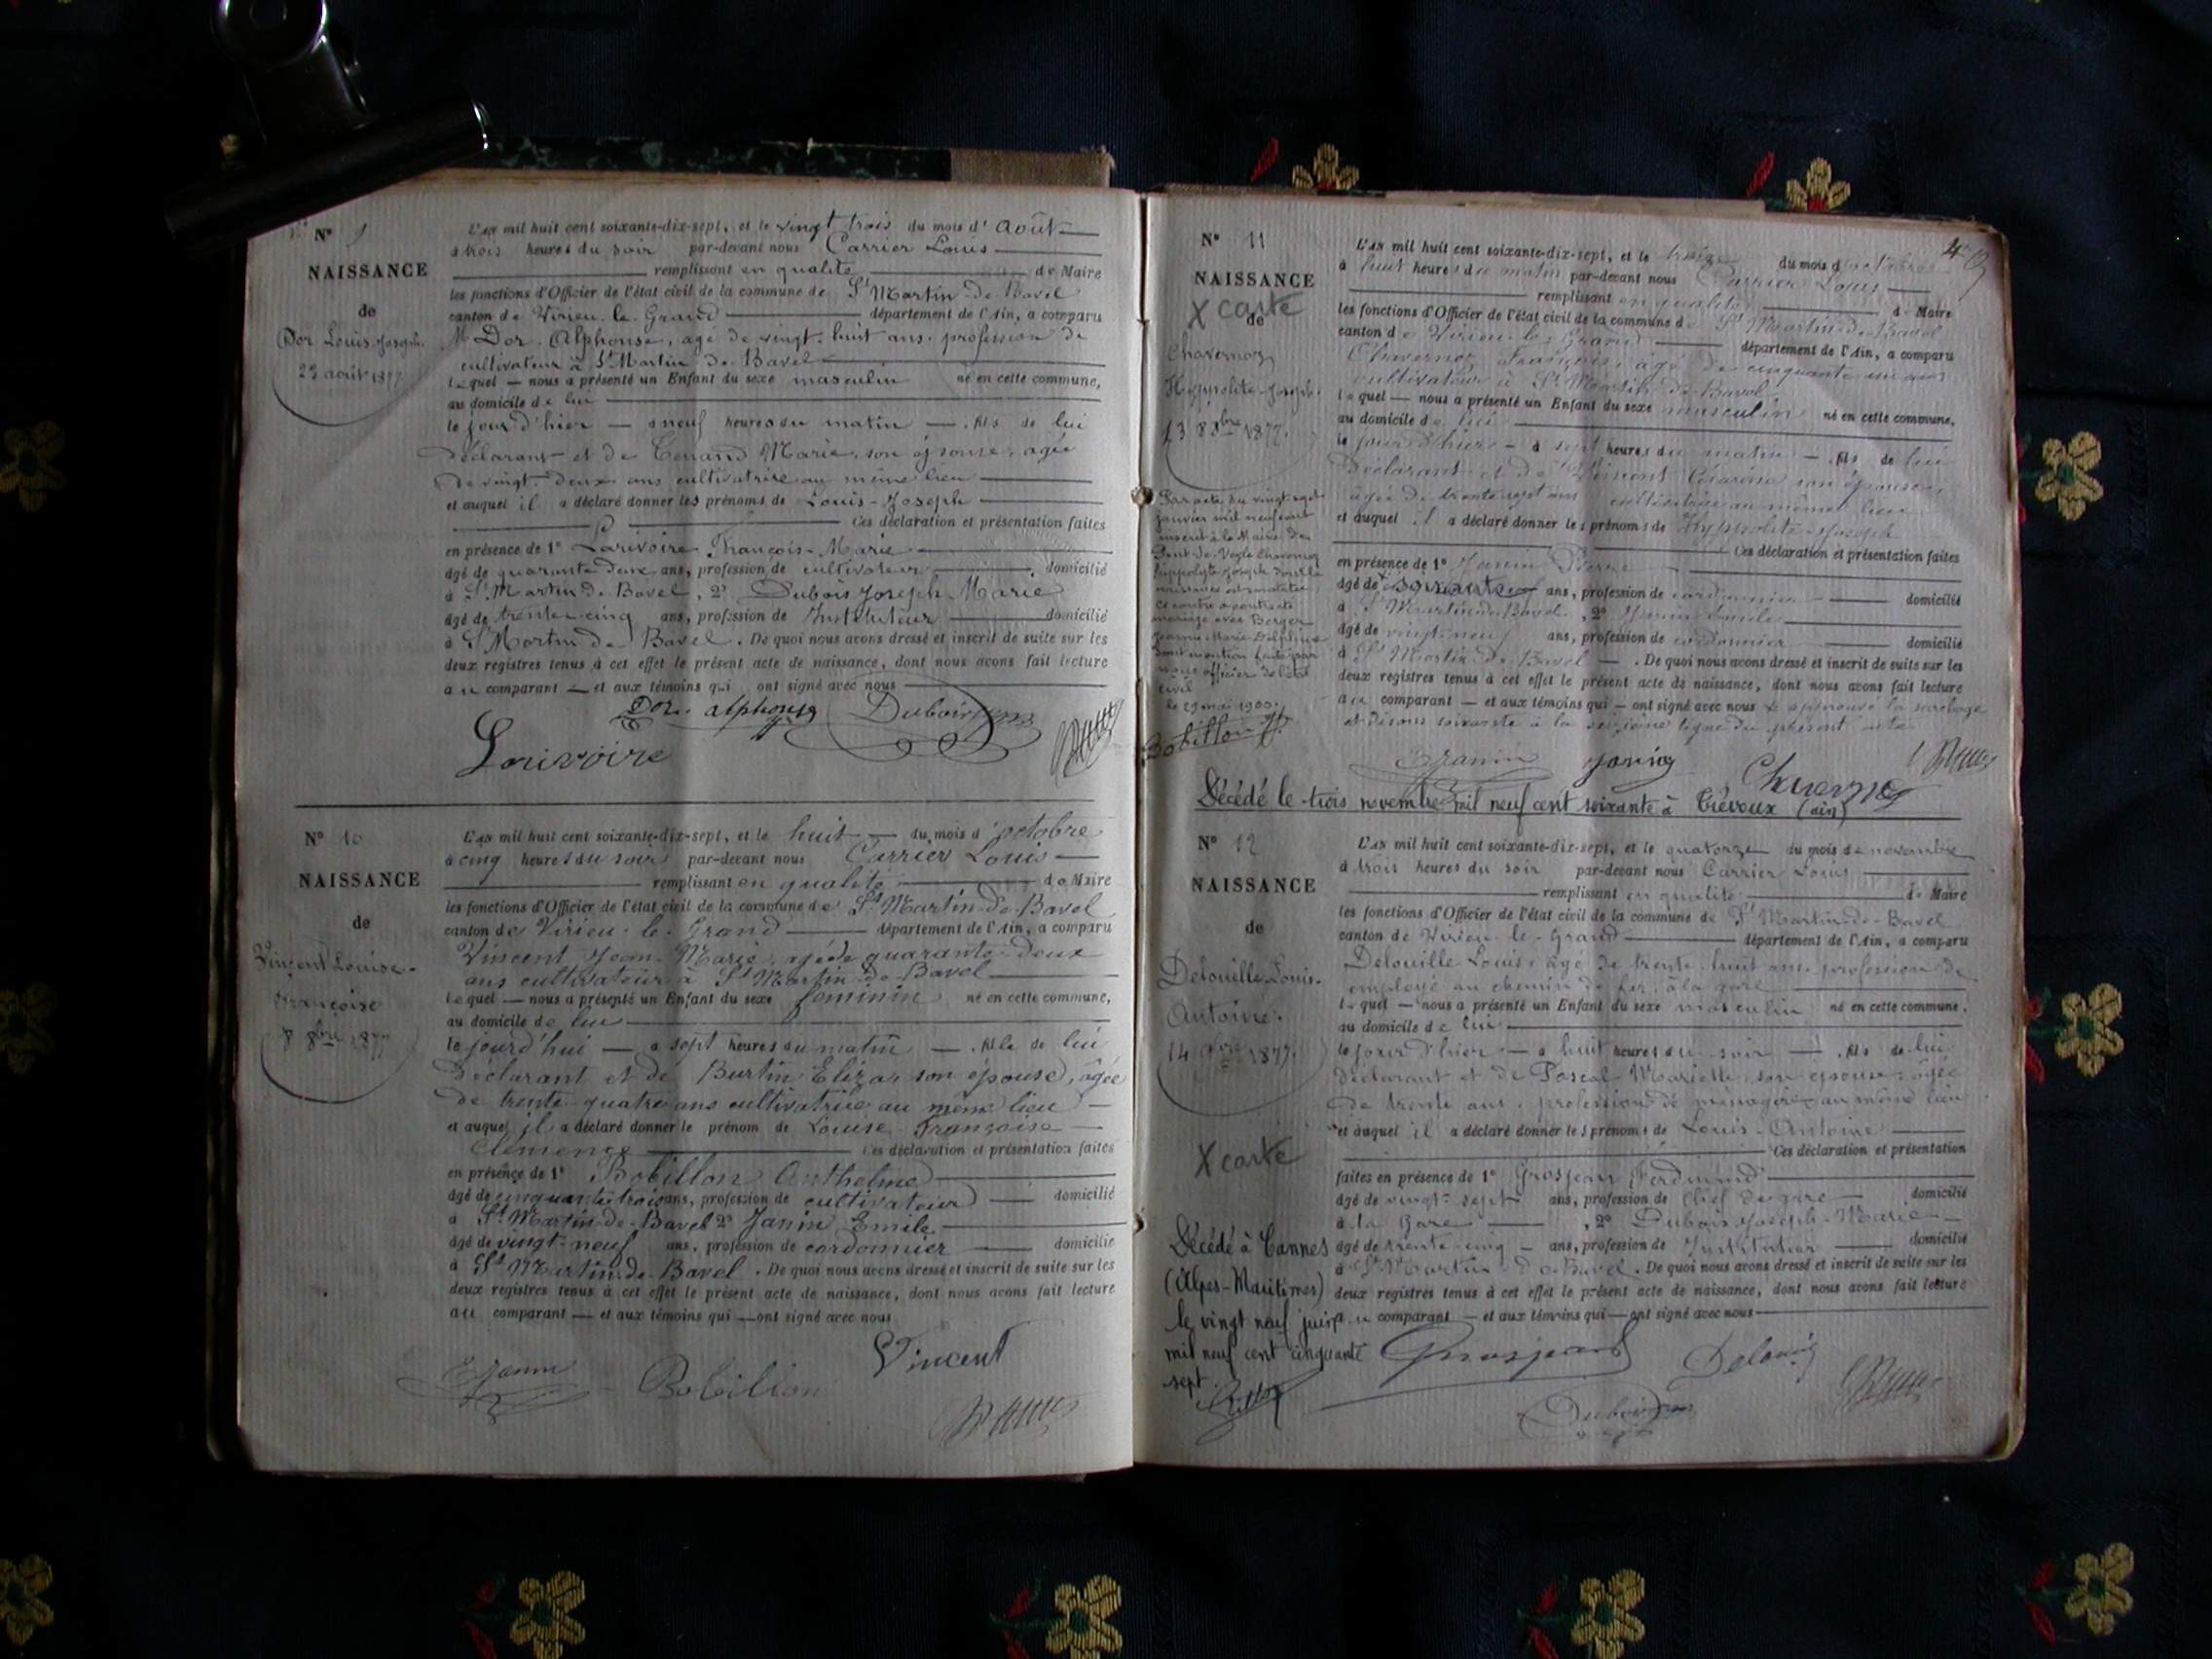 N° 9
NAISSANCE
de
Dor Louis-Joseph.
23 août 1877
L'AN mil huit cent soixante-dix-sept, et le vingt trois du mois d'Août
à trois heures du soir par-devant nous Carrier Louis
remplissant en qualité de Maire
les fonctions d'Officier de l'état civil de la commune de St Martin-de-Bavel
canton de Virieu-le-Grand département de l'Ain, a comparu
M Dor Alphonse, agé de vingt-huit ans, profession de
cultivateur à St Martin-de-Bavel
lequel nous a présenté un Enfant du sexe masculin né en cette commune,
au domicile de lui
le jour d'hier à neuf heures du matin fils de lui
déclarant et de Marie, son épouse, agée
de vingt-deux ans cultivatrice au même lieu
et auquel il a déclaré donner les prénoms de Louis-Joseph
Ces déclaration et présentation faites
en présence de 1° Larivoire François-Marie
âgé de quarante deux ans, profession de cultivateur domicilié
à St Martin-de-Bavel, 2° Dubois Joseph-Marie
âgé de trente-cinq ans, profession de Instituteur domicilié
à St Martin-de-Bavel. De quoi nous avons dressé et inscrit de suite sur les
deux registres tenus à cet effet le présent acte de naissance, dont nous avons fait lecture
au comparant et aux témoins qui ont signé avec nous
Dor alphonse Dubois
Larivoire
N° 10
NAISSANCE
de
Vincent Louise-
Françoise
8 8bre 1877
L'AN mil huit cent soixante-dix-sept, et le huit du mois d'octobre
à cinq heures du soir par-devant nous Carrier Louis
remplissant en qualité de Maire
les fonctions d'Officier de l'état civil de la commune de St Martin-de-Bavel
canton de Virieu-le-Grand département de l'Ain, a comparu
Vincent Jean-Marie, agé de quarante-deux
ans cultivateur à St Martin-de-Bavel
lequel nous a présenté un Enfant du sexe féminin né en cette commune,
au domicile de lui
le jourd'hui à sept heures du matin fille de lui
déclarant et de Burtin Eliza, son épouse, agée
de trente-quatre ans cultivatrice au même lieu
et auquel il a déclaré donner le prénom de Louise-Françoise
Clémence Ces déclaration et présentation faites
en présence de 1° Bobillon Anthelme
âgé de cinquante-trois ans, profession de cultivateur domicilié
à St Martin-de-Bavel 2° Janin Emile
âgé de vingt-neuf ans, profession de cordonnier domicilié
à St Martin-de-Bavel. De quoi nous avons dressé et inscrit de suite sur les
deux registres tenus à cet effet le présent acte de naissance, dont nous avons fait lecture
au comparant et aux témoins qui ont signé avec nous
Vincent
E Janin Bobillon
49
N° 11
NAISSANCE
X carte
de
Chavernoz
Hyppolite-Joseph.
13 8bre 1877.
Par acte du vingt-sept
janvier mil neuf cent
inscrit à la Mairie de
Pont-de-Veyle Chavernoz
hippolyte joseph dont la
naissance est constatée
ci contre a contracté
mariage avec Berger
Jeanne Marie Delphine
dont mention faite par
nous officier de l'état
civil
le 29 mai 1900.
Bobillon
L'AN mil huit cent soixante-dix-sept, et le treize du mois d'octobre
à huit heures du matin par-devant nous Carrier Louis
remplissant en qualité de Maire
les fonctions d'Officier de l'état civil de la commune de St Martin-de-Bavel
canton de Virieu-le-Grand département de l'Ain, a comparu
Chavernoz François, agé de cinquante un ans
cultivateur à St Martin-de-Bavel
lequel nous a présenté un Enfant du sexe masculin né en cette commune,
au domicile de lui
le jour d'hier à sept heures du matin fils de lui
déclarant et de son épouse,
agée de trente-sept ans cultivatrice au même lieu
et auquel il a déclaré donner les prénoms de Hyppolite-Joseph
Ces déclaration et présentation faites
en présence de 1° Janin Pierre
âgé de soixante ans, profession de cordonnier domicilié
à St Martin-de-Bavel, 2° Janin Emile
âgé de vingt-neuf ans, profession de cordonnier domicilié
à St Martin-de-Bavel. De quoi nous avons dressé et inscrit de suite sur les
deux registres tenus à cet effet le présent acte de naissance, dont nous avons fait lecture
au comparant et aux témoins qui ont signé avec nous approuvé la surcharge
et disons soixante à la seizième ligne du présent acte
E Janin Janin Chavernoz
Décédé le trois novembre mil neuf cent soixante à Trévoux (ain)
N° 12
NAISSANCE
de
Delouille Louis-
Antoine.
14 9bre 1877.
X carte
Décédé à Cannes
(Alpes-Maritimes)
le vingt neuf juin
mil neuf cent cinquante
sept.
L'AN mil huit cent soixante-dix-sept, et le quatorze du mois de novembre
à trois heures du soir par-devant nous Carrier Louis
remplissant en qualité de Maire
les fonctions d'Officier de l'état civil de la commune de St Martin-de-Bavel
canton de Virieu-le-Grand département de l'Ain, a comparu
Delouille Louis, agé de trente-huit ans, profession de
employé au chemin de fer, à la gare
lequel nous a présenté un Enfant du sexe masculin né en cette commune,
au domicile de lui
le jour d'hier à huit heures du soir fils de lui
déclarant et de Pascal Mariette, son épouse, agée
de trente ans, profession de ménagère au même lieu
et auquel il a déclaré donner les prénoms de Louis-Antoine
Ces déclaration et présentation
faites en présence de 1° Grosjean Ferdinand
âgé de vingt-sept ans, profession de Chef de gare domicilié
à la Gare, 2° Dubois Joseph-Marie
âgé de trente-cinq ans, profession de Instituteur domicilié
à St Martin-de-Bavel. De quoi nous avons dressé et inscrit de suite sur les
deux registres tenus à cet effet le présent acte de naissance, dont nous avons fait lecture
au comparant et aux témoins qui ont signé avec nous
Grosjean
Dubois